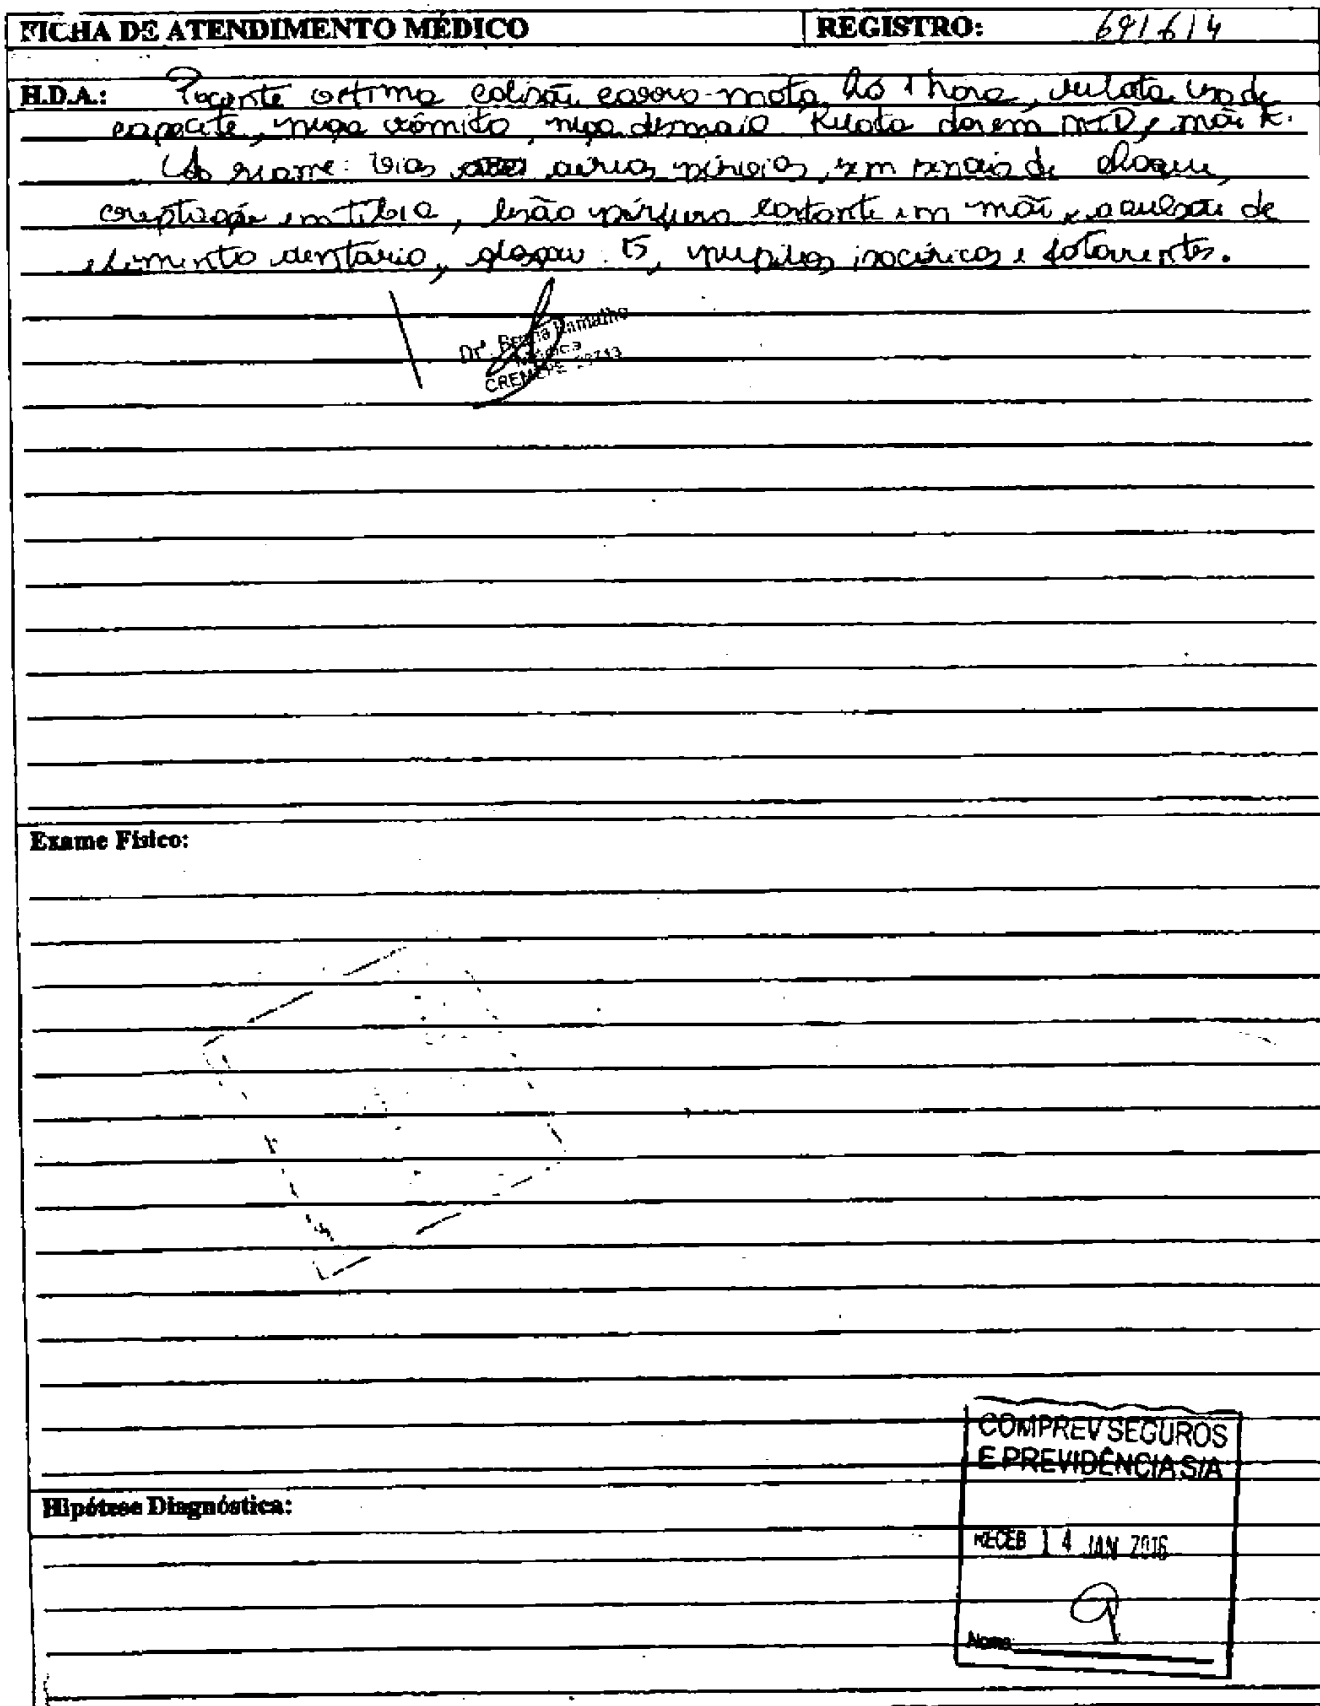 FICHA DE ATENDIMENTO MÉDICO REGISTRO: 691614
H.D.A.: Paciente vítima colisão carro-moto há 1 hora, relata uso de
capacete, nega vômito, nega desmaio. Relata dor em MID, mão
Ao exame: vias aéreas pérvias, sem sinais de choque,
crepitação em tíbia, lesão pérfuro cortante em mão, avulsão de
elemento dentário, glasgow 15, pupilas isocóricas e fotorreagentes.
Drª Bruna Ramalho
Médica
CREMEPE
Exame Físico:
COMPREV SEGUROS
E PREVIDÊNCIA S/A
Hipótese Diagnóstica:
RECEB 14 JAN 2016
Nome: